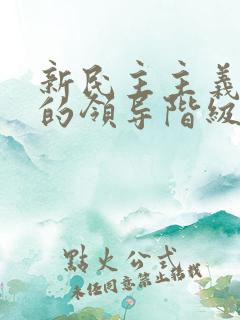 新民主主義
的領导階級
點火公式
未经同意禁止转载